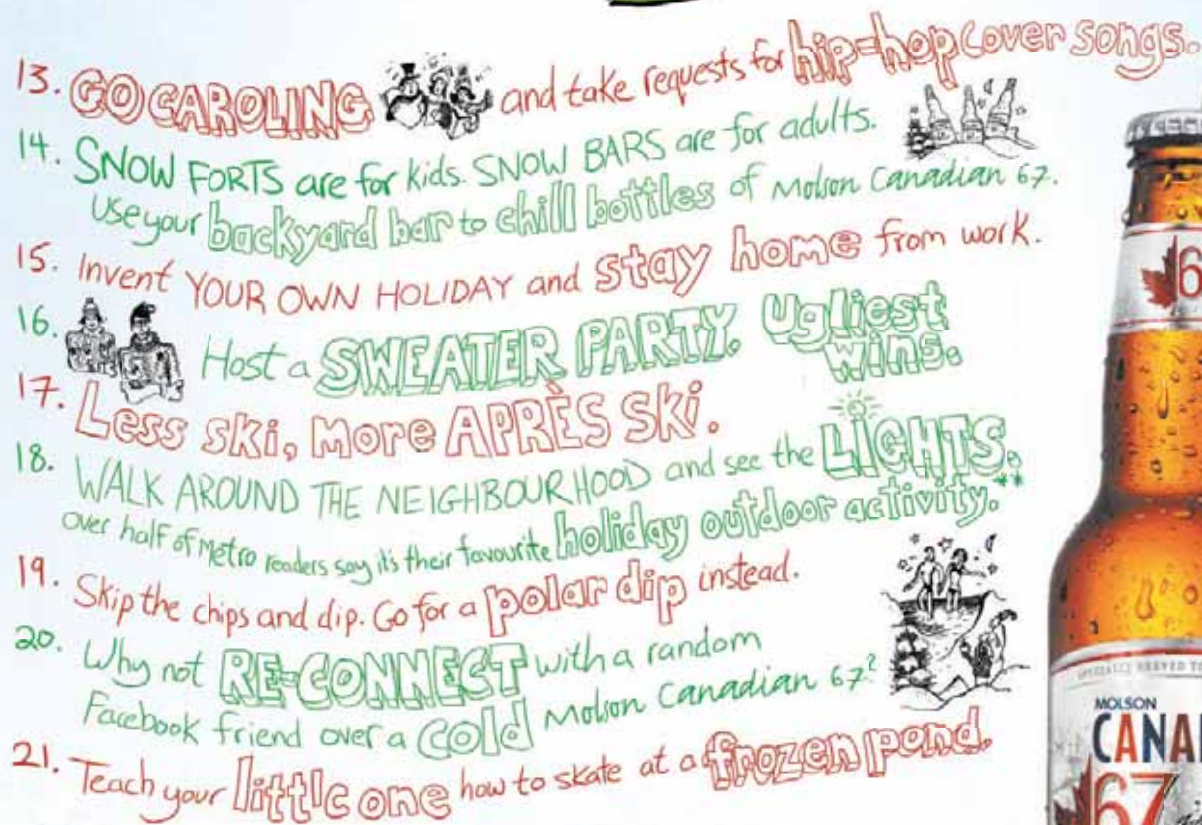 13. GO CAROLING and take requests for hip-hop cover songs.
14. SNOW FORTS are for kids. SNOW BARS are for adults.
Use your backyard bar to chill bottles of Molson Canadian 67.
15. Invent YOUR OWN HOLIDAY and stay home from work.
16. Host a SWEATER PARTY. Ugliest wins.
17. Less ski, More APRÈS SKi.
18. WALK AROUND THE NEIGHBOURHOOD and see the LiGHTS.**
over half of Metro readers say it's their favourite holiday outdoor activity.
19. Skip the chips and dip. Go for a polar dip instead.
20. Why not RE-CONNECT with a random
Facebook friend over a cold Molson Canadian 67?
21. Teach your little one how to skate at a frozen pond.
6
MOLSON
CANA
67